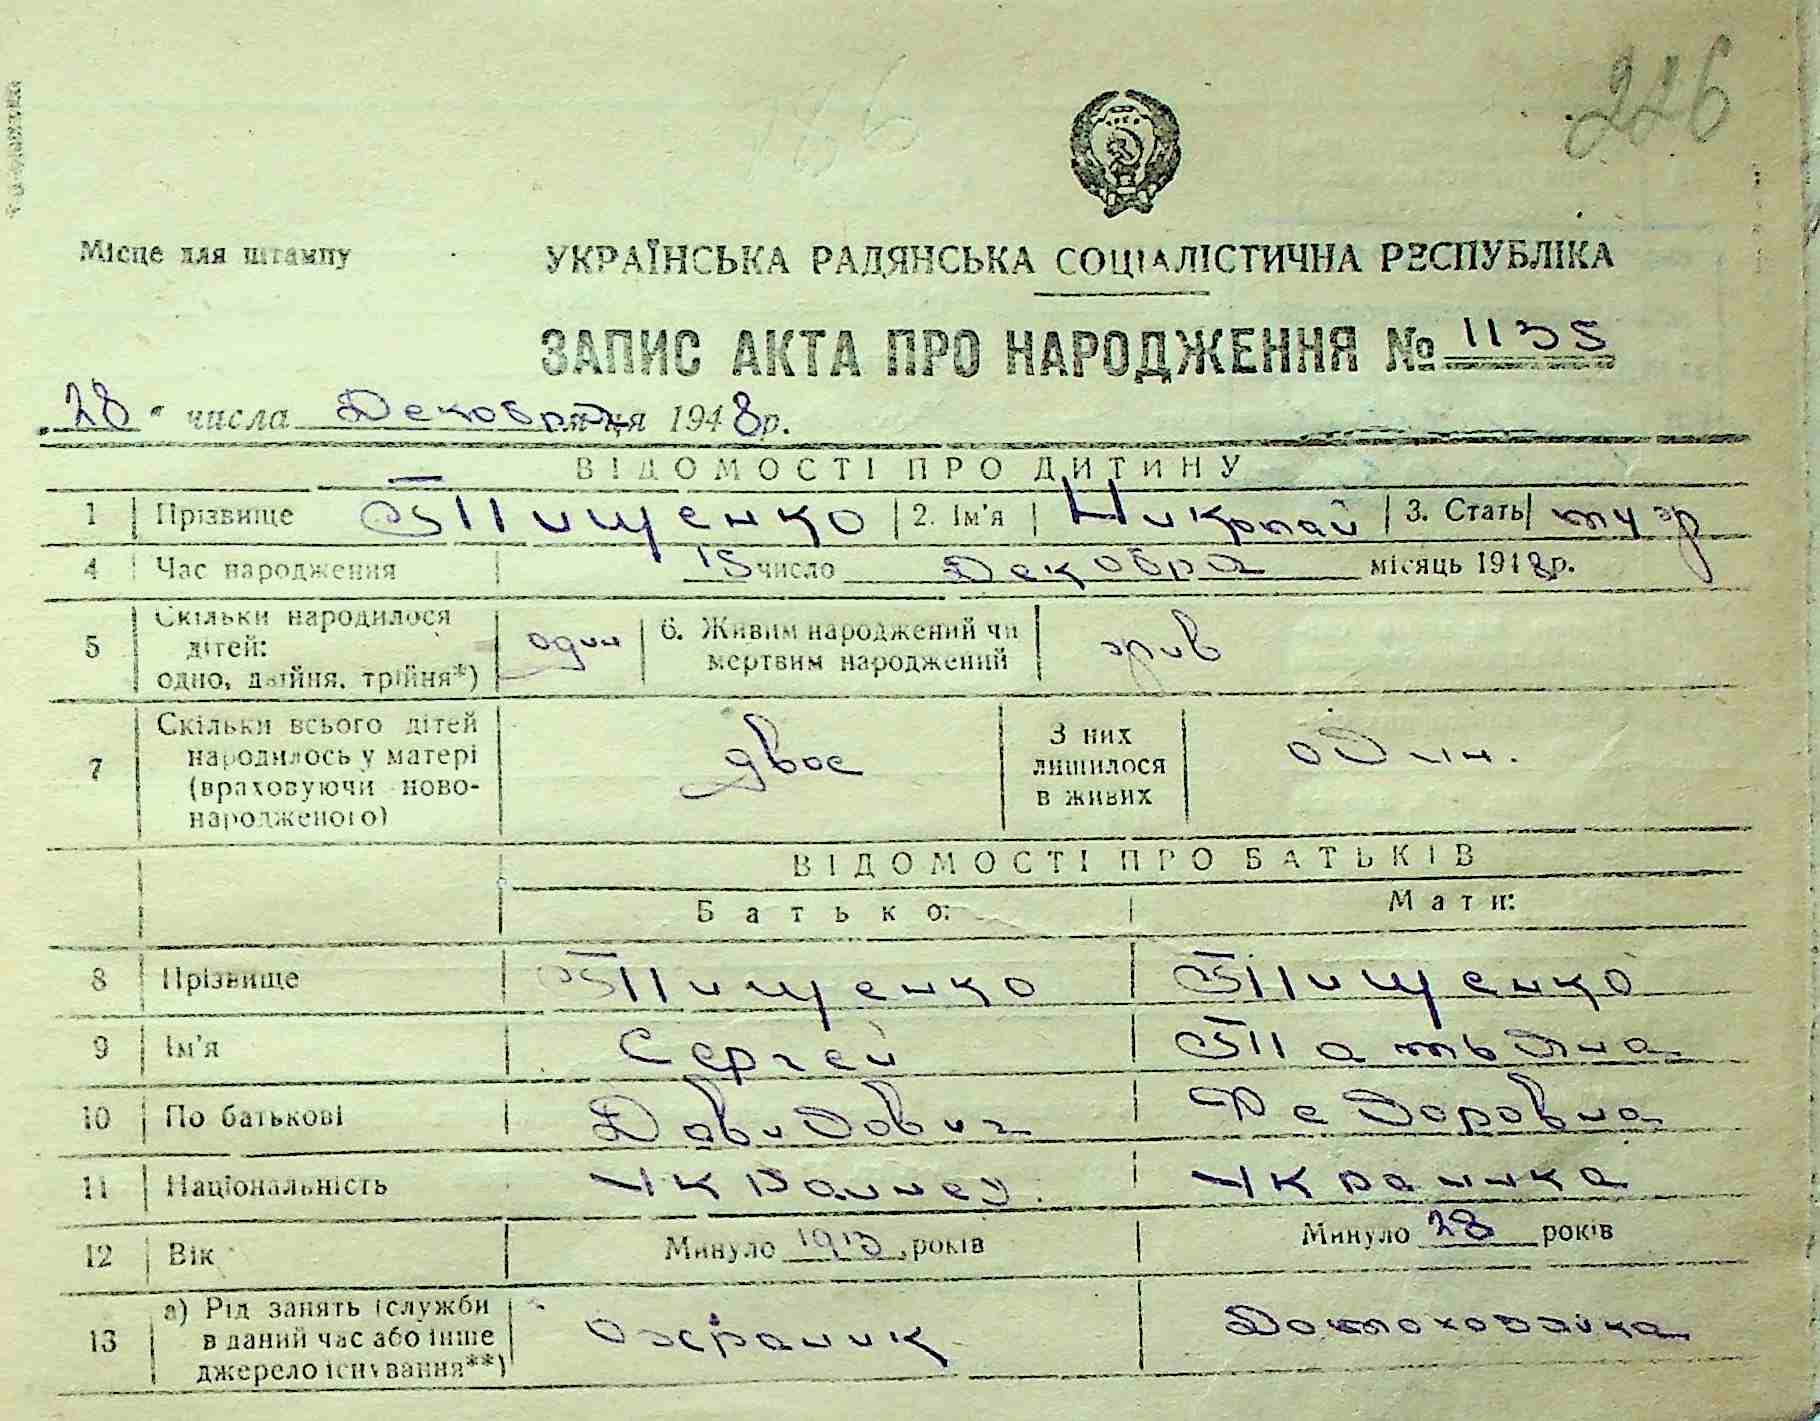 226
186
Місце для штампу
УКРАЇНСЬКА РАДЯНСЬКА СОЦІАЛІСТИЧНА РЕСПУБЛІКА
ЗАПИС АКТА ПРО НАРОДЖЕННЯ № 1135
„28“ числа Декабря місяця 1948 р.
ВІДОМОСТІ ПРО ДИТИНУ
1 Прізвище Тищенко 2. Ім'я Николай 3. Стать муж
4 Час народження 15 число Декабря місяць 1948 р.
5 Скільки народилося дітей: одно, двійня, трійня*) один 6. Живим народжений чи мертвим народжений жив
7 Скільки всього дітей народилось у матері (враховуючи новонародженого) двое З них лишилося в живих один.
ВІДОМОСТІ ПРО БАТЬКІВ
Батько: Мати:
8 Прізвище Тищенко Тищенко
9 Ім'я Сергей Татьяна
10 По батькові Давидович Федоровна
11 Національність Украинец. Украинка
12 Вік Минуло 1913 років Минуло 28 років
13 а) Рід занять (служби в даний час або інше джерело існування**) Охраник Домохозяйка